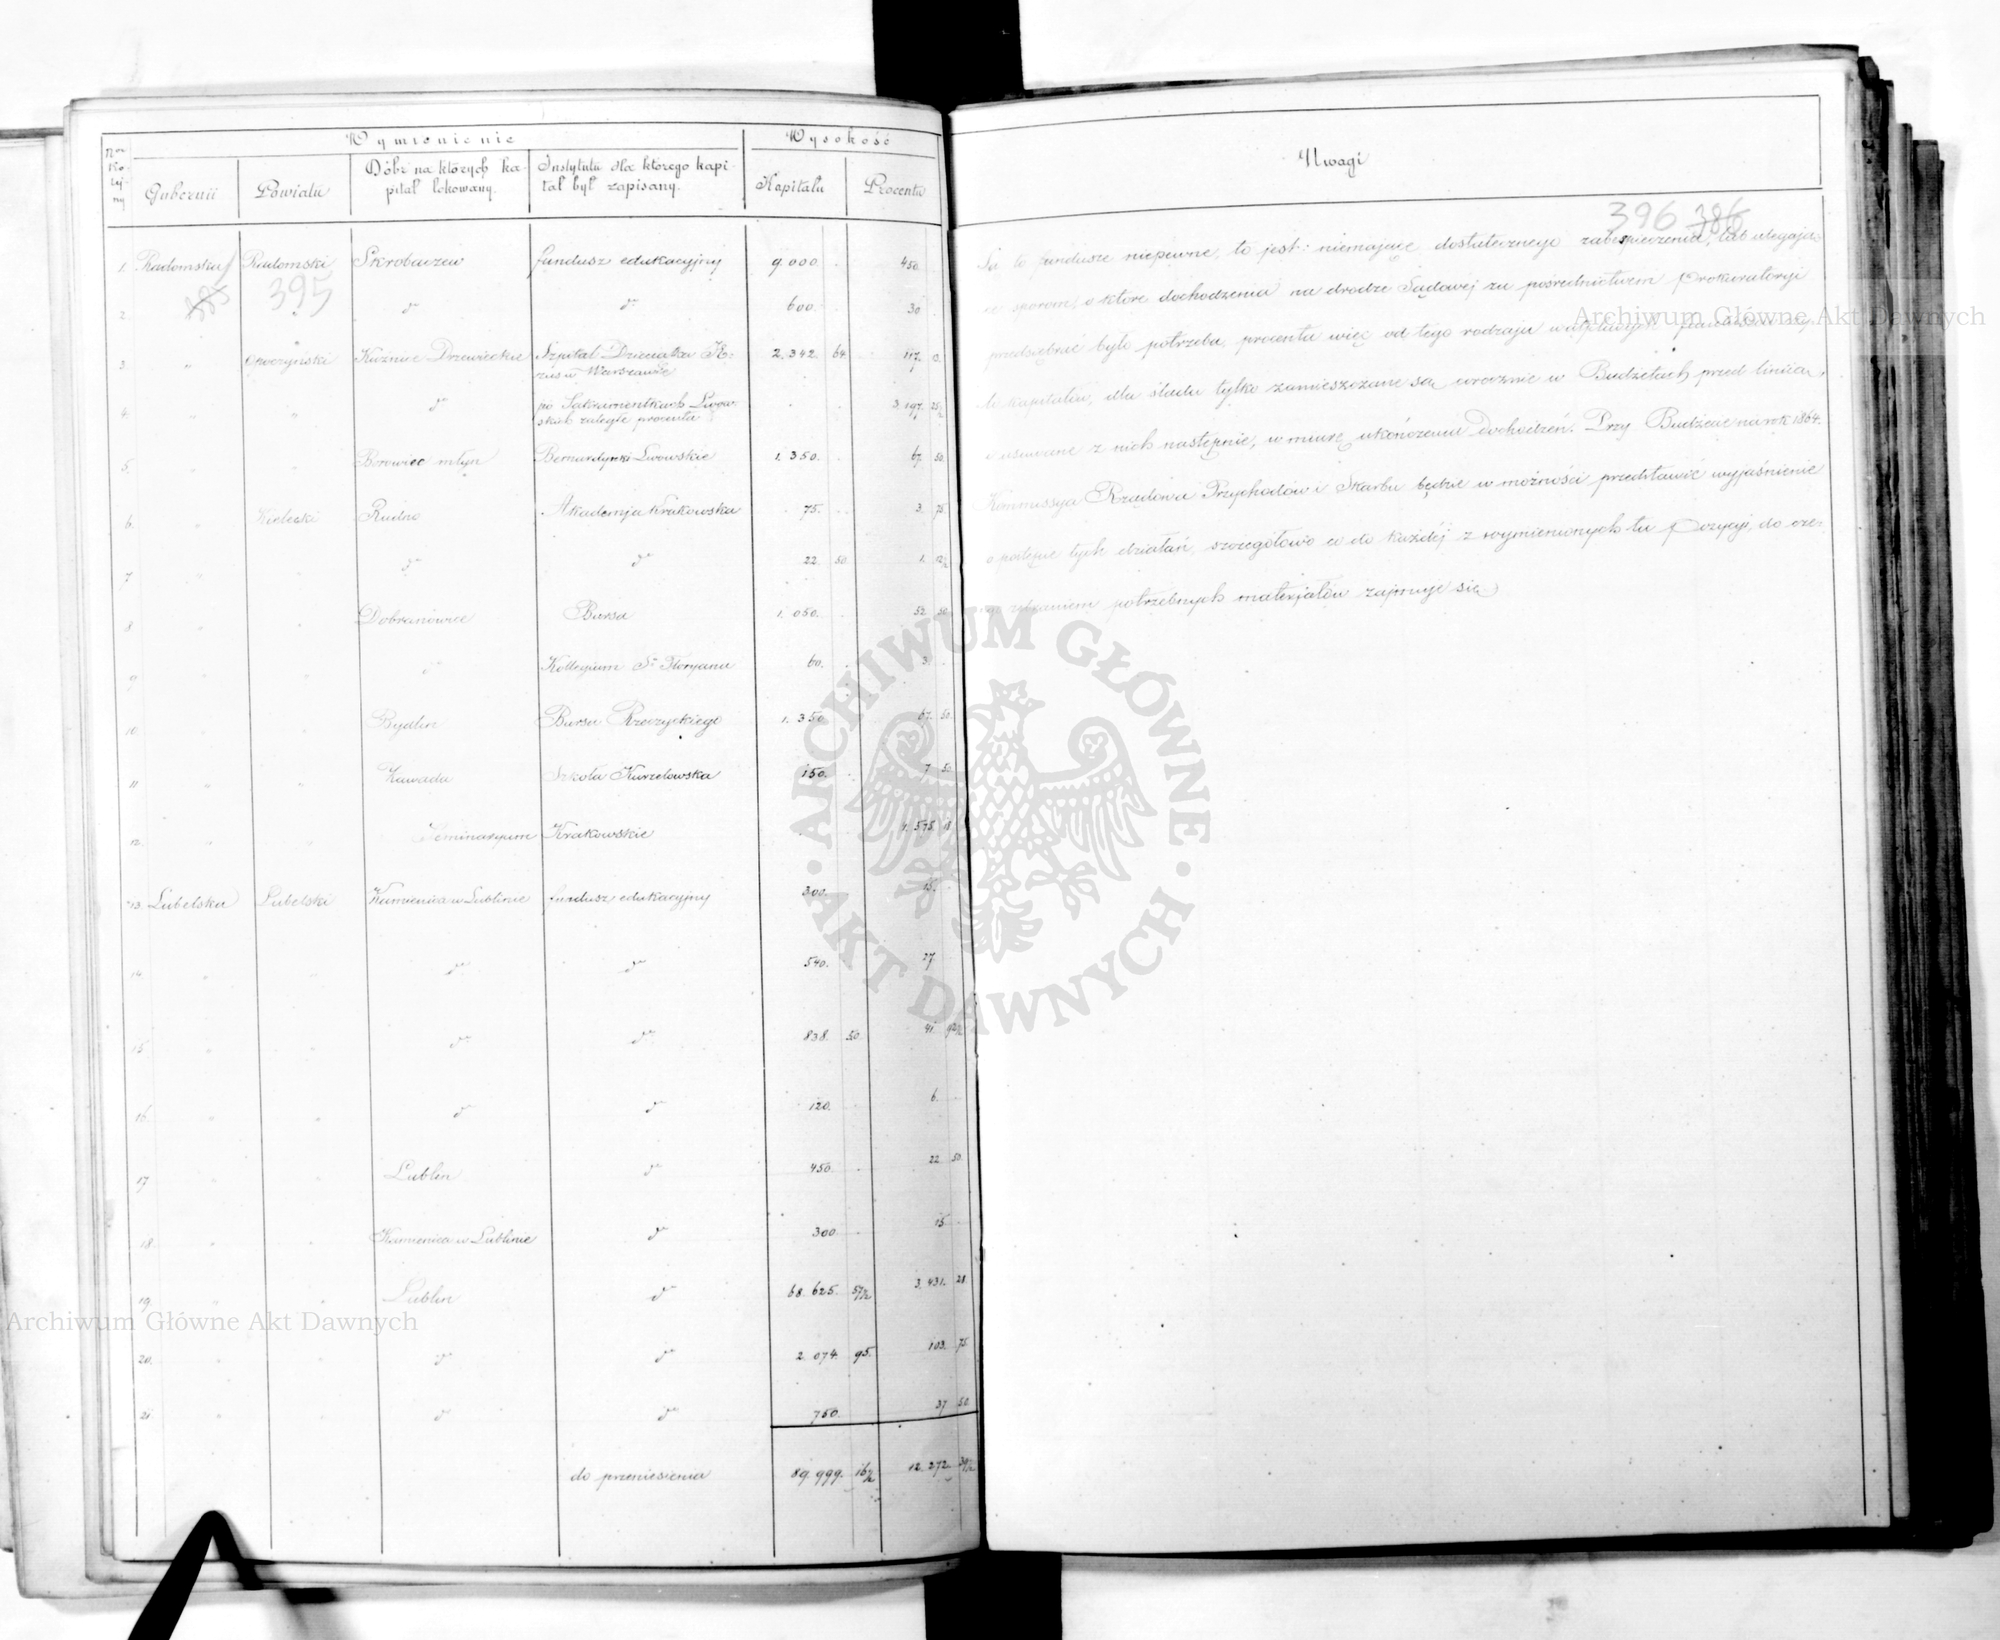 Wymienienie
Wysokość
Nor
Gubernii
Powiatu
Dóbr na których ka-
pitał lokowany.
Instytutu dla którego kapi-
tał był zapisany.
Kapitału
Procentu
1. Radomska Radomski Skrobaczew fundusz edukacyjny 9.000. 450.
385 395
2. " " do do 600. 30
3. " Opoczyński Kuźnice Drzewieckie Szpital Dzieciątka Je- 2.342. 64. 117. 13.
zus w Warszawie
4. " " do po Sakramentkach Lwow- . . 3.197. 25½
skich zaległe procenta
5. " " Borowiec młyn Bernardynki Lwowskie 1.350. 67. 50.
6. " Kielecki Rudno Akademja Krakowska 75. 3. 75.
7. " " do do 22. 50. 1. 12½
8. " " Dobranowice Bursa 1.050. 52. 50.
9. " " do Kollegium St. Floryana 60. 3.
10. " " Bydlin Bursa 1.350. 67. 50.
11. " " Zawada Szkoła Kurzelowska 150. 7. 50.
12. " " Seminaryum Krakowskie . 1.575. 18
13. Lubelska Lubelski Kamienica w Lublinie fundusz edukacyjny 300. 15.
14. " " do do 540. 27.
15. " " do do 838. 50. 41. 92½
16. " " do do 120. 6.
17. " " Lublin do 450. 22. 50.
18. " " Kamienica w Lublinie do 300. 15.
19. " " Lublin do 68.625. 57½ 3.431. 28.
20. " " do do 2.074. 95. 103. 75.
21. " " do do 750. 37. 50.
do przeniesienia 89.999. 16½ 12.272.
Uwagi
396 386
Są to fundusze niepewne, to jest: niemające dostatecznego zabespieczenia, lub ulegają-
ce sporom, o które dochodzenia na drodze Sądowej za pośrednictwem Prokuratoryi
przedsiębrać było potrzeba, procenta więc od tego rodzaju
kapitałów, dla śladu tylko zamieszczane są corocznie w Budżetach przed linią,
a usuwane z nich następnie, w miarę ukończenia dochodzeń. Przy Budżecie na rok 1864.
Kommissya Rządowa Przychodów i Skarbu będzie w możności przedstawić wyjaśnienie
o postępie tych działań, szczegółowo co do każdéj z wymienionych tu Pozycyi, do cze-
go zebraniem potrzebnych materjałów zajmuje się
Archiwum Główne Akt Dawnych
Archiwum Główne Akt Dawnych
ARCHIWUM GŁÓWNE · AKT DAWNYCH ·